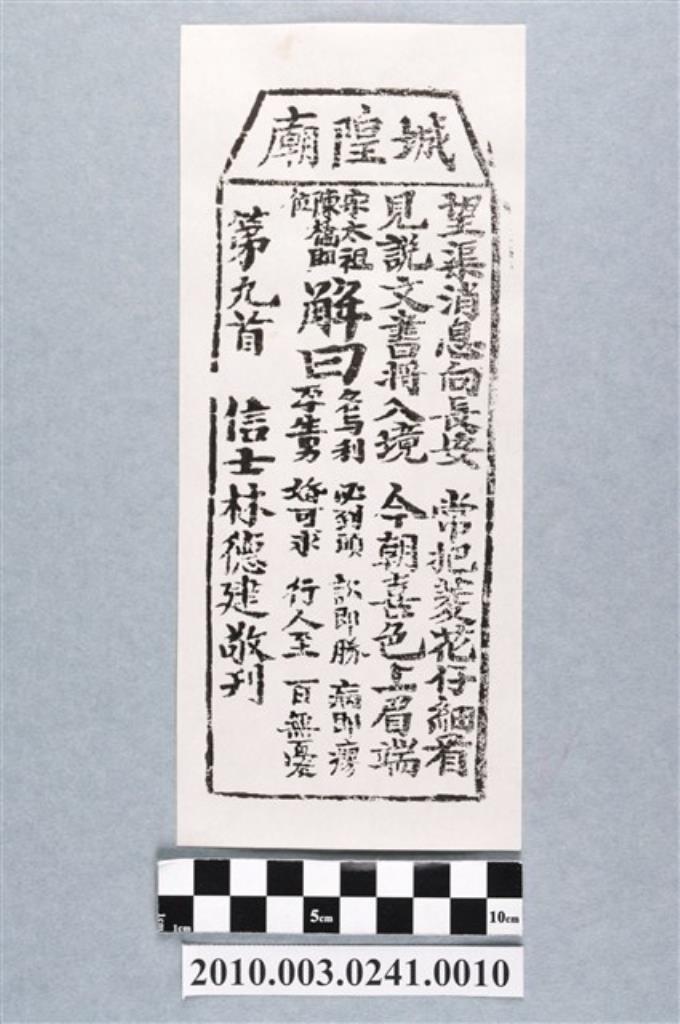 城隍廟
望渠消息向長安 常把菱花仔細看
見說文書將入境 今朝喜色上眉端
宋太祖
陳橋即
位
解曰
名与利 必到頭 訟即勝 病即瘳
孕生男 婚可求 行人至 百無憂
第九首 信士林德建敬刊
1cm 5cm 10cm
2010.003.0241.0010